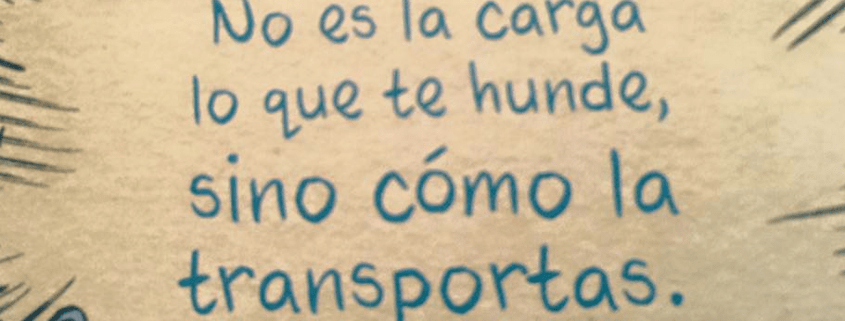 No es la carga
lo que te hunde,
sino cómo la
transportas.